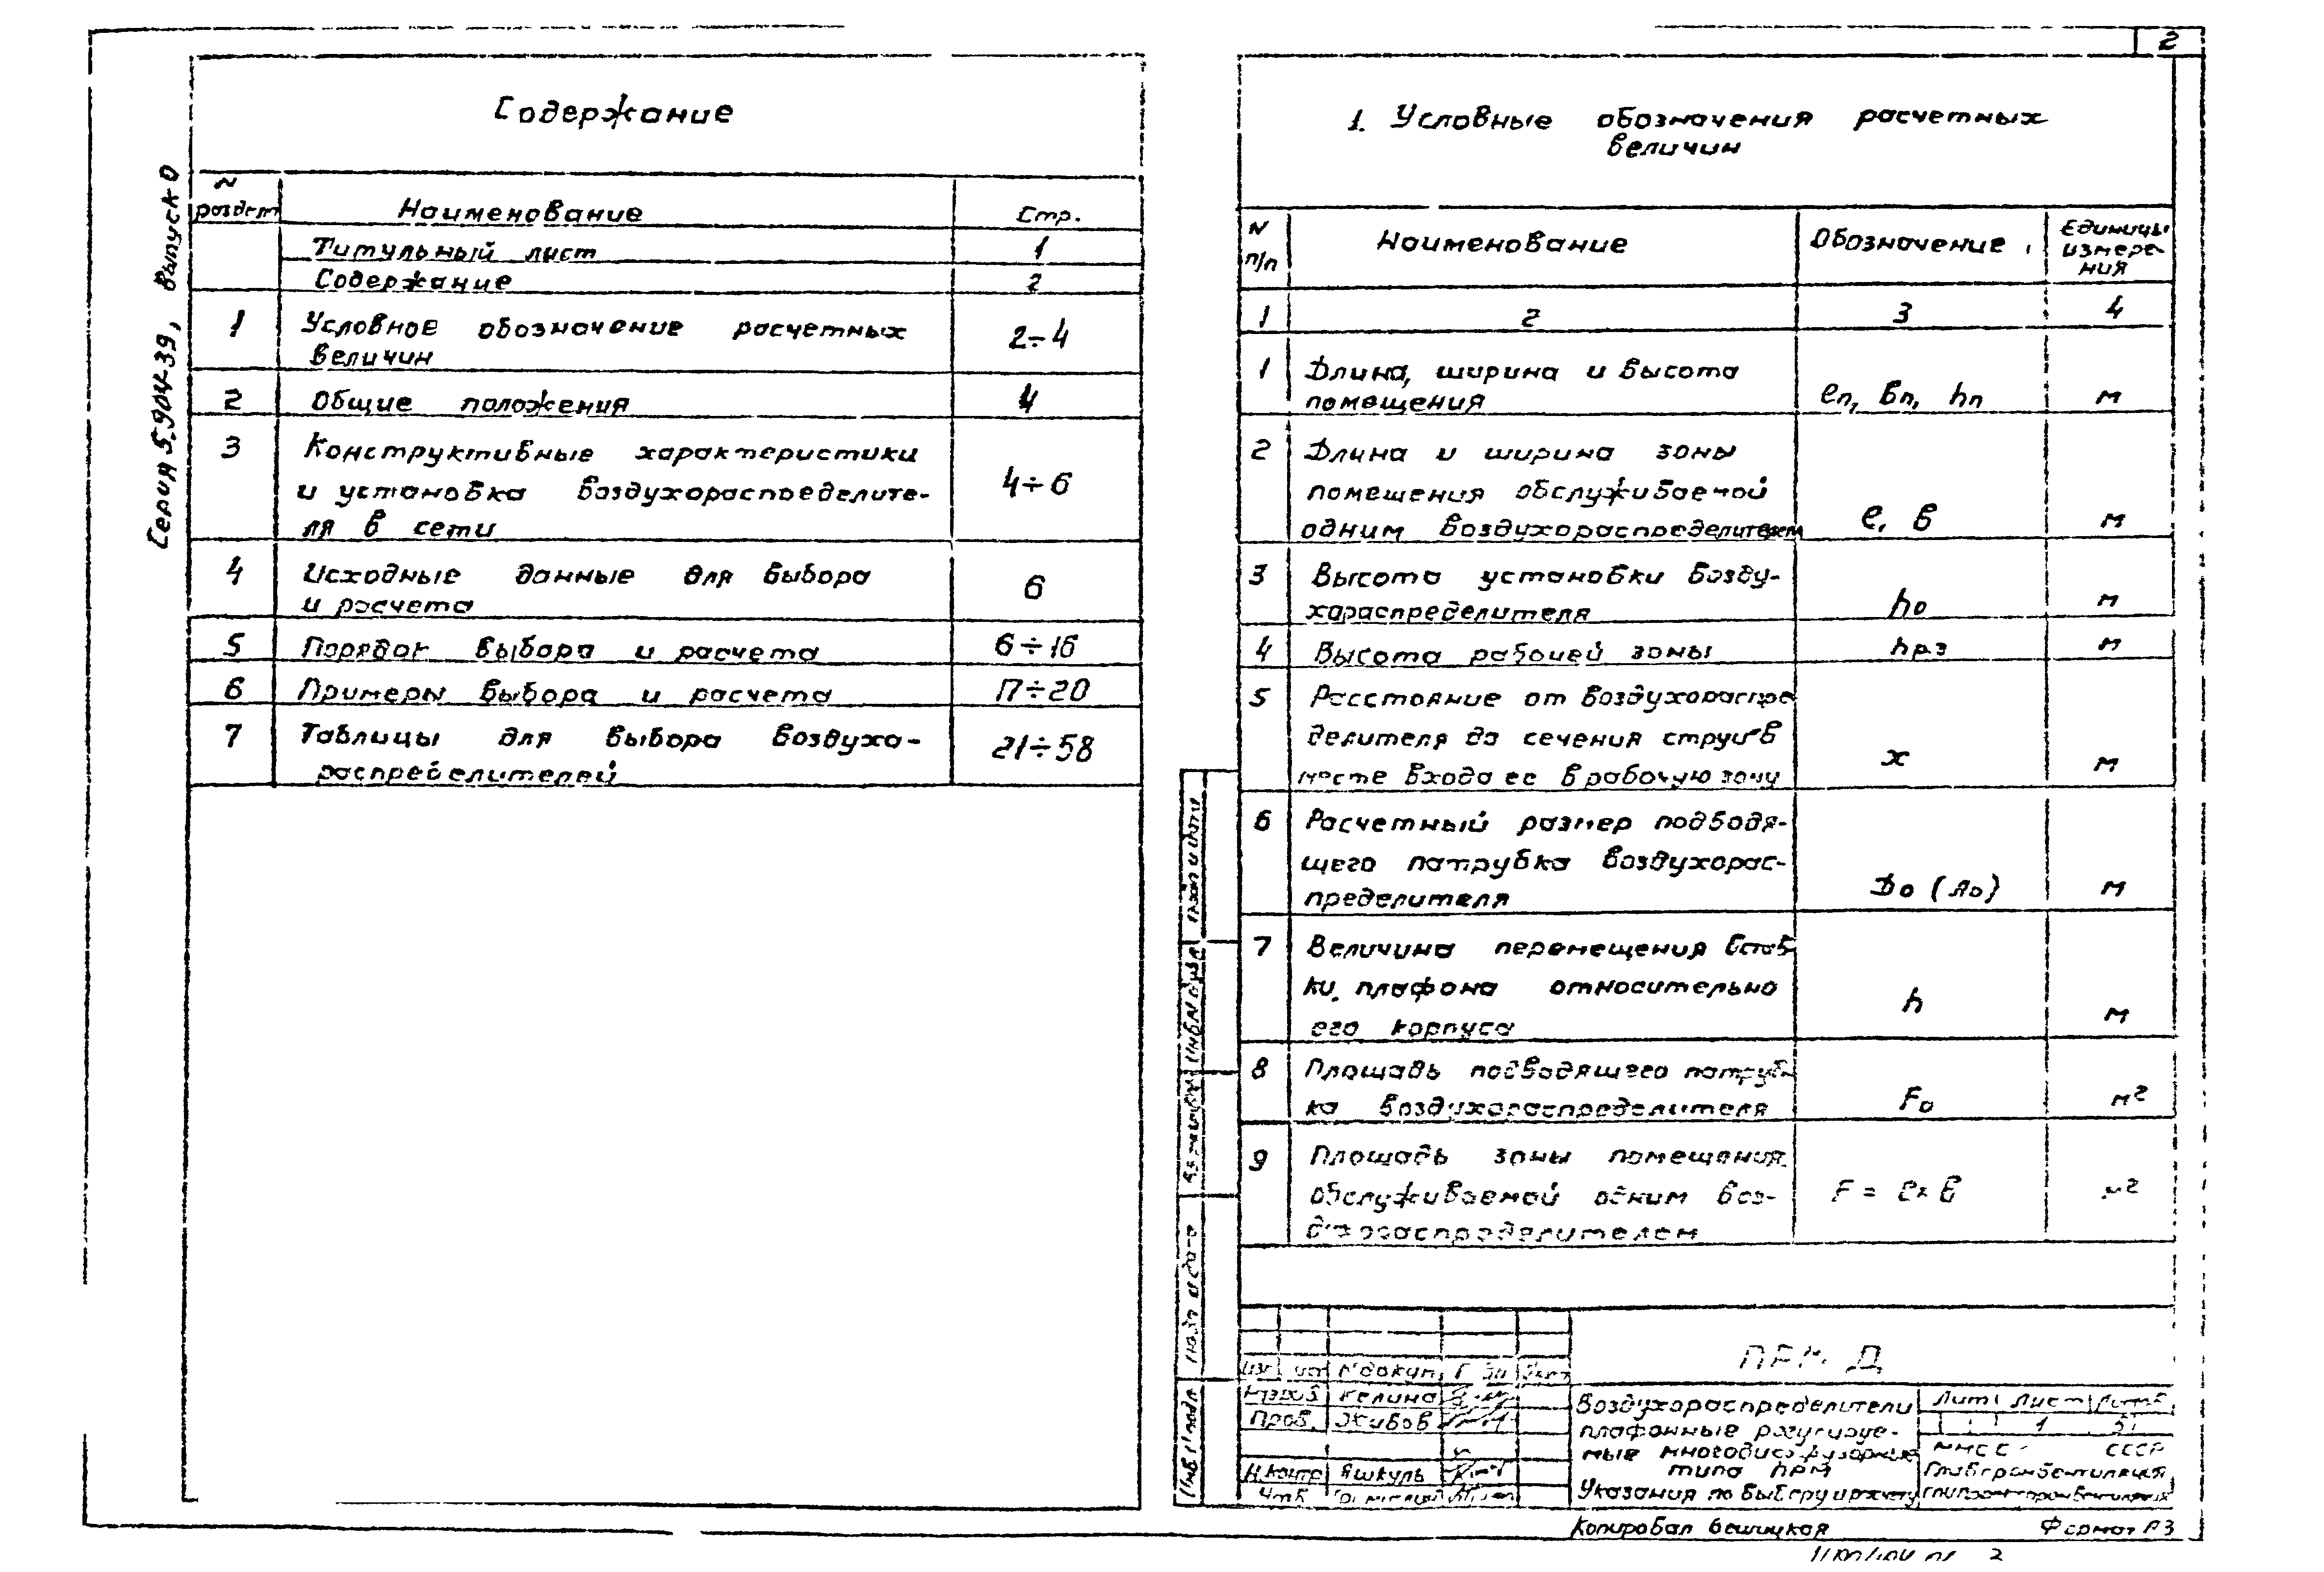 2
Серия 5.904-39, Выпуск 0
Содержание
N
раздел Наименование Стр.
Титульный лист 1
Содержание 2
1 Условное обозначение расчетных 2÷4
величин
2 Общие положения 4
3 Конструктивные характеристики
и установка воздухораспределите- 4÷6
ля в сети
4 Исходные данные для выбора 6
и расчета
5 Порядок выбора и расчета 6÷16
6 Примеры выбора и расчета 17÷20
7 Таблицы для выбора воздухо- 21÷58
распределителей
1. Условные обозначения расчетных
величин
N п/п Наименование Обозначение Единицы
измере-
ния
1 2 3 4
1 Длина, ширина и высота
помещения ℓп, вп, hп м
2 Длина и ширина зоны
помещения обслуживаемой
одним воздухораспределителем ℓ, в м
3 Высота установки возду-
хараспределителя hо м
4 Высота рабочей зоны hрз м
5 Расстояние от воздухораспре
делителя до сечения струи в
месте входа ее в рабочую зону x м
6 Расчетный размер подводя-
щего патрубка воздухорас-
пределителя Dо (Aо) м
7 Величина перемещения встав
ки плафона относительно
его корпуса h м
8 Площадь подводящего патруб
ка воздухораспределителя Fо м²
9 Площадь зоны помещения,
обслуживаемой одним воз-
духораспределителем F = ℓ × в м²
Подп. и дата
Инв N дубл
Взам инв N
Подп. и дата
Инв N подл
Изм Лист N докум. Дата
Разраб. Келина
Пров. Живов
Н.контр Яшкуль
Утв.
ПРМ Д
Воздухораспределители
плафонные регулируе-
мые многодиффузорные
типа ПРМ
Указания по выбору и расчету
Лит Лист Листов
1
ММСС СССР
Главпромвентиляция
Копировал Формат А3
2